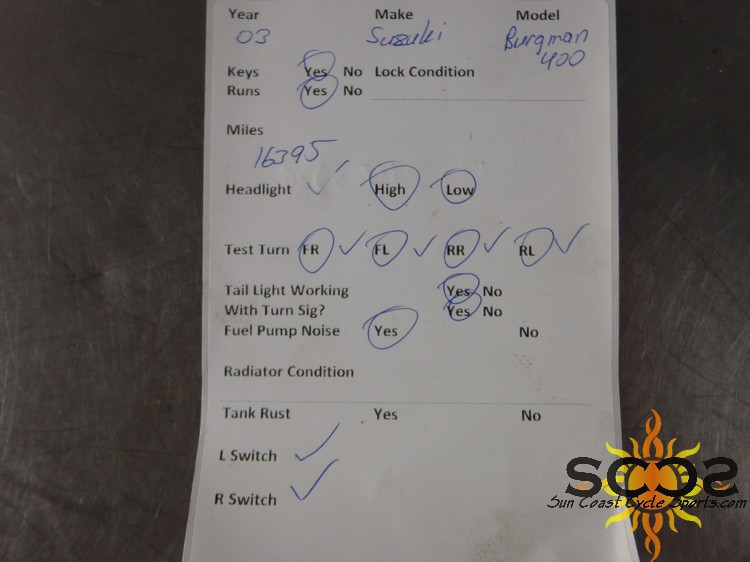 Year Make Model
03 Suzuki Burgman
400
Keys Yes No Lock Condition
Runs Yes No
Miles
16395
Headlight High Low
Test Turn FR FL RR RL
Tail Light Working Yes No
With Turn Sig? Yes No
Fuel Pump Noise Yes No
Radiator Condition
Tank Rust Yes No
L Switch
R Switch
SCCS
Sun Coast Cycle Sports.com